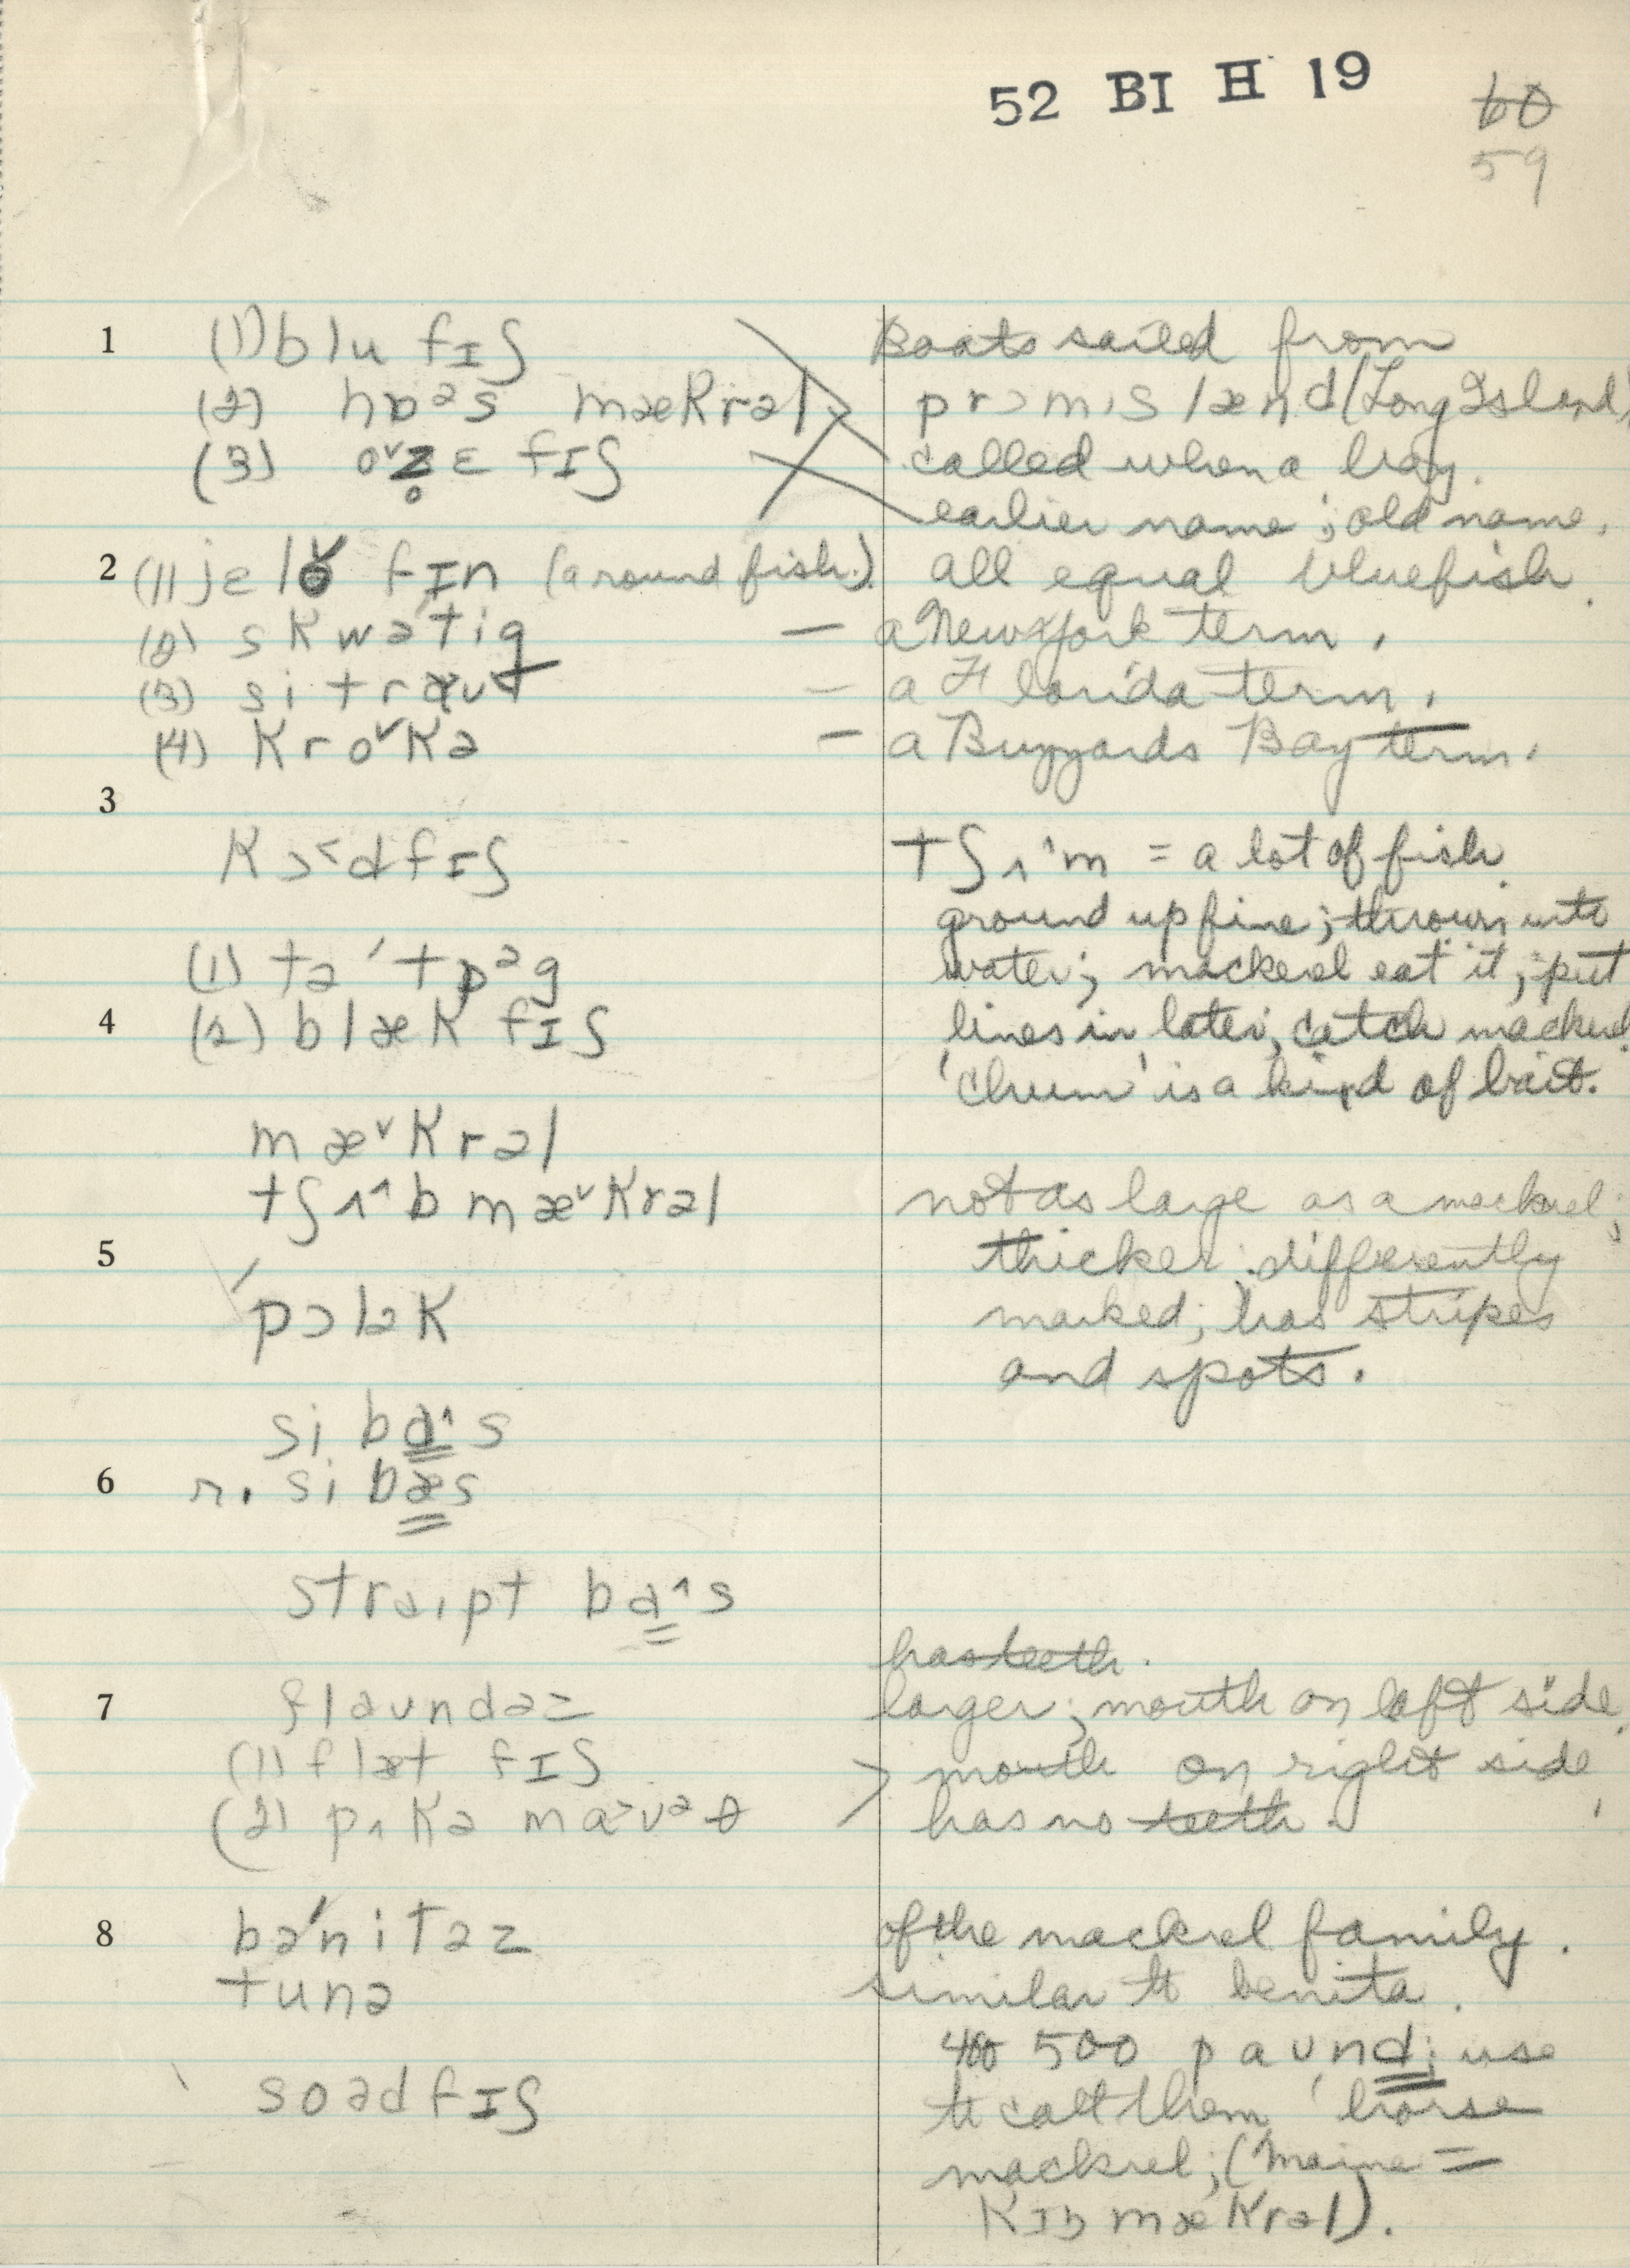 52 BI H 19
60
59
1 (1) blu fɪʃ
Boats sailed from
(2) hɒəs mækrəl
prɔmɪs lænd (Long Island)
(3) o˅z̥ɛ fɪʃ
called when a boy.
earlier name; old name.
2 (1) jɛlo˅ fɪn (a round fish.)
all equal bluefish.
(2) skwə'tig
— a New York term.
(3) si traut
— a Florida term.
(4) kro˅kə
— a Buzzards Bay term.
3
kɔ˂dfɪʃ
tʃʌ^m = a lot of fish
ground up fine; thrown into
(1) tə'tɒəg
water; mackerel eat it; put
4 (2) blæk fɪʃ
lines in later, catch mackrel.
'chum' is a kind of bait.
mæ˅krəl
tʃʌ^b mæ˅krəl
not as large as a mackrel;
5
thicker; differently
'pɔlək
marked; has stripes
and spots.
si ba^s
6 r. si bæs
straɪpt ba^s
has teeth.
7 flaundəz
larger; mouth on left side.
(1) flæt fɪʃ
> mouth on right side
(2) pʌkə ma˃uəθ
has no teeth.
8 bə'nitəz
of the mackrel family.
tunə
similar to benita.
400 500 paund; use
soədfɪʃ
to call them 'horse
mackrel; (Maine =
kɪŋ mækrəl).